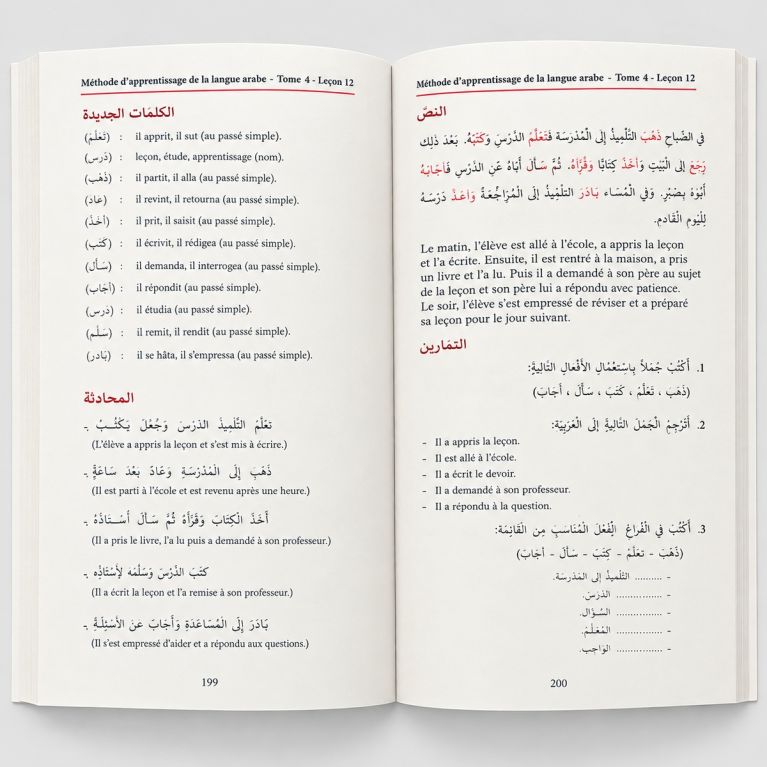 Méthode d'apprentissage de la langue arabe - Tome 4 - Leçon 12
الكلمَات الجديدة
(تَعَلَّمَ) : il apprit, il sut (au passé simple).
(دَرس) : leçon, étude, apprentissage (nom).
(ذَهَب) : il partit, il alla (au passé simple).
(عَاد) : il revint, il retourna (au passé simple).
(أخَذ) : il prit, il saisit (au passé simple).
(كتَب) : il écrivit, il rédigea (au passé simple).
(سَأل) : il demanda, il interrogea (au passé simple).
(أجَاب) : il répondit (au passé simple).
(دَرس) : il étudia (au passé simple).
(سَلَّم) : il remit, il rendit (au passé simple).
(بَادر) : il se hâta, il s'empressa (au passé simple).
المحادثة
- تعَلَّمَ التَّلْمِيذُ الدَّرْسَ وَجُعْلَ يَكْتُـبُ
(L'élève a appris la leçon et s'est mis à écrire.)
- ذَهَبَ إِلَى الْمُدْرَسَةِ وَعَادَ بَعْدَ سَاعَةٍ
(Il est parti à l'école et est revenu après une heure.)
- أَخَذَ الْكِتَابَ وَقَرَّأَهُ ثُمَّ سَـألَ أُسْـتَاذَهُ
(Il a pris le livre, l'a lu puis a demandé à son professeur.)
- كتَبَ الدَّرْسَ وَسَلَّمَهُ لِأسْتَاذِه
(Il a écrit la leçon et l'a remise à son professeur.)
- بَادَرَ إِلَى الْمُسَاعَدَةِ وَأَجَابَ عَن الأَسْئِلَـةِ
(Il s'est empressé d'aider et a répondu aux questions.)
199
Méthode d'apprentissage de la langue arabe - Tome 4 - Leçon 12
النصَّ
في الصَّباحِ ذَهَبَ التَّلْمِيذُ إِلَى الْمُدْرَسَة فَتَعَلَّمُ الدَّرْسَ وَكَتَبَهُ. بَعْدَ ذَلِك
رَجَعَ إلى الْبَيْتِ وَأخَذَ كِتَابًا وَقَرَّأهُ. ثُمَّ سَـأل أَبَاهُ عَنِ الدَّرْسِ فَأجَابَهُ
أَبُوْهُ بِصَبْرٍ. وَفي الْمُسَاء بَادَرَ التلْمِيذُ إلَى الْمُرَاجُّعَةً وَأعَدَّ دَرَسَـهُ
لِلْيَوم القَادمِ.
Le matin, l'élève est allé à l'école, a appris la leçon
et l'a écrite. Ensuite, il est rentré à la maison, a pris
un livre et l'a lu. Puis il a demandé à son père au sujet
de la leçon et son père lui a répondu avec patience.
Le soir, l'élève s'est empressé de réviser et a préparé
sa leçon pour le jour suivant.
التمَارين
1. أَكْتُبْ جُمَلاً بِاسْتِعْمَالِ الأفْعَالِ التَّالِيَةِ:
(ذَهَبَ ، تَعَلَّمُ ، كَتَبَ ، سَأَلَ ، أجَابَ)
2. أَتَرْجِمُ الْجُمَلَ التَّالِيَةَ إِلَى الْعَرَبِيَّة:
- Il a appris la leçon.
- Il est allé à l'école.
- Il a écrit le devoir.
- Il a demandé à son professeur.
- Il a répondu à la question.
3. أَكْتُبَ في الْفَراغِ الْفِعْلَ الْمُنَاسَبَ مِن الْقَائِمَة:
(ذَهَبَ - تَعلَمْ - كِتَبَ - سَألَ - أجَابَ)
- .......... التَّلْمِيذُ إلى المَدْرَسة.
- ................ الدَرَسَ.
- ................ السُـؤَال.
- ................ المُعَـلَّمْ.
- ................ الوَاجب.
200